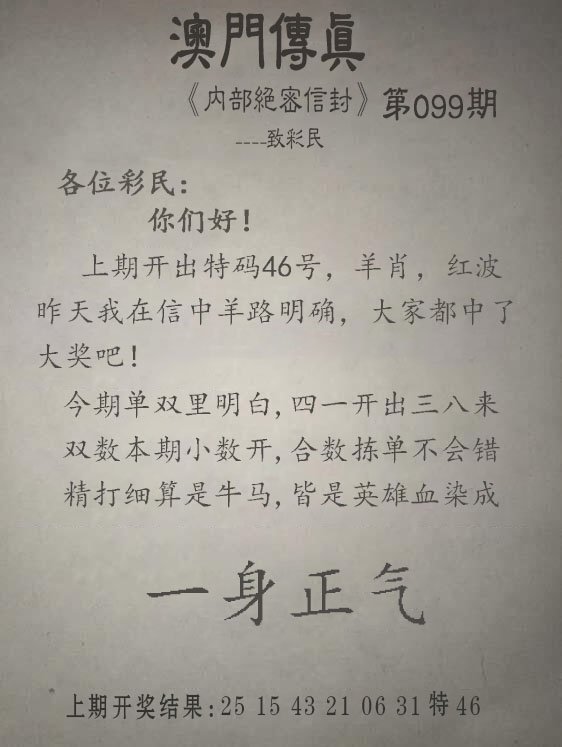 澳門傳眞
《内部絕密信封》第099期
----致彩民
各位彩民：
你们好！
上期开出特码46号，羊肖，红波
昨天我在信中羊路明确，大家都中了
大奖吧！
今期单双里明白,四一开出三八来
双数本期小数开,合数拣单不会错
精打细算是牛马,皆是英雄血染成
一身正气
上期开奖结果:25 15 43 21 06 31 特46